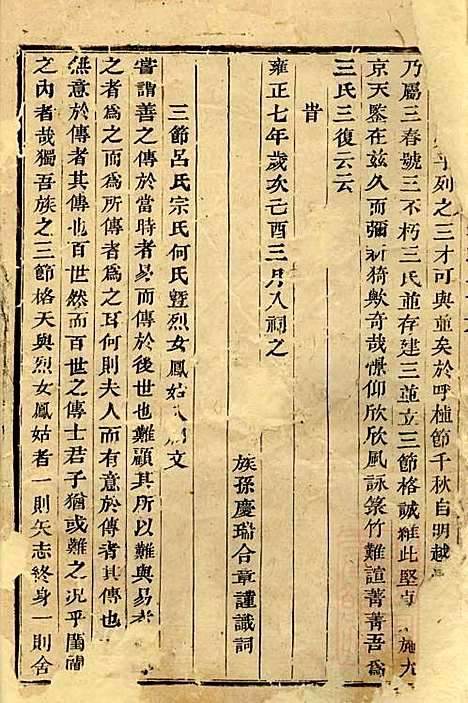 列之三才可與並矣於呼植節千秋自明越
乃屬三春號三不朽三氏並存建三並立三節格誠維此堅貞施大
京天鑒在茲久而彌新猗歟奇哉憬仰欣欣風詠箓竹難諠菁菁吾為
三氏三復云云
旹
雍正七年歲次己酉三月入祠之
族孫慶瑞合章謹識詞
三節呂氏宗氏何氏暨烈女鳳姑入祠文
嘗謂善之傳於當時者易而傳於後世也難顧其所以難與易者
之者為之而為所傳者為之耳何則夫人而有意於傳者其傳也
無意於傳者其傳也百世然而百世之傳士君子猶或難之況乎閨閫
之內者哉獨吾族之三節格天與烈女鳳姑者一則矢志終身一則舍